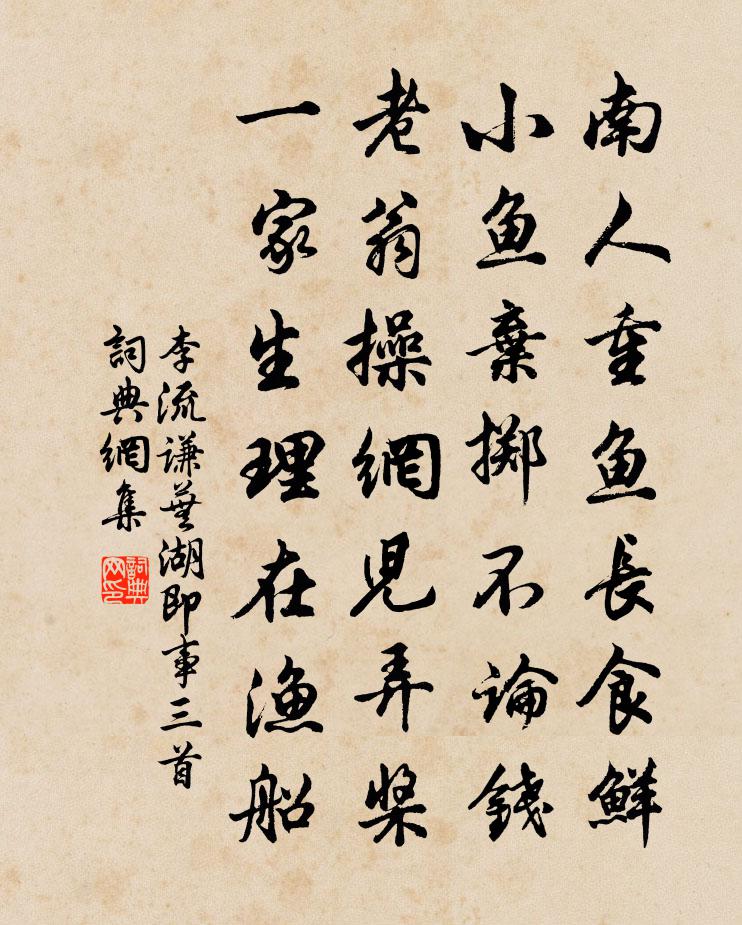 南人重魚長食鮮
小魚棄擲不論錢
老翁操網兒弄槳
一家生理在漁船
李流謙蕪湖即事三首
詞典網集
詞典网印